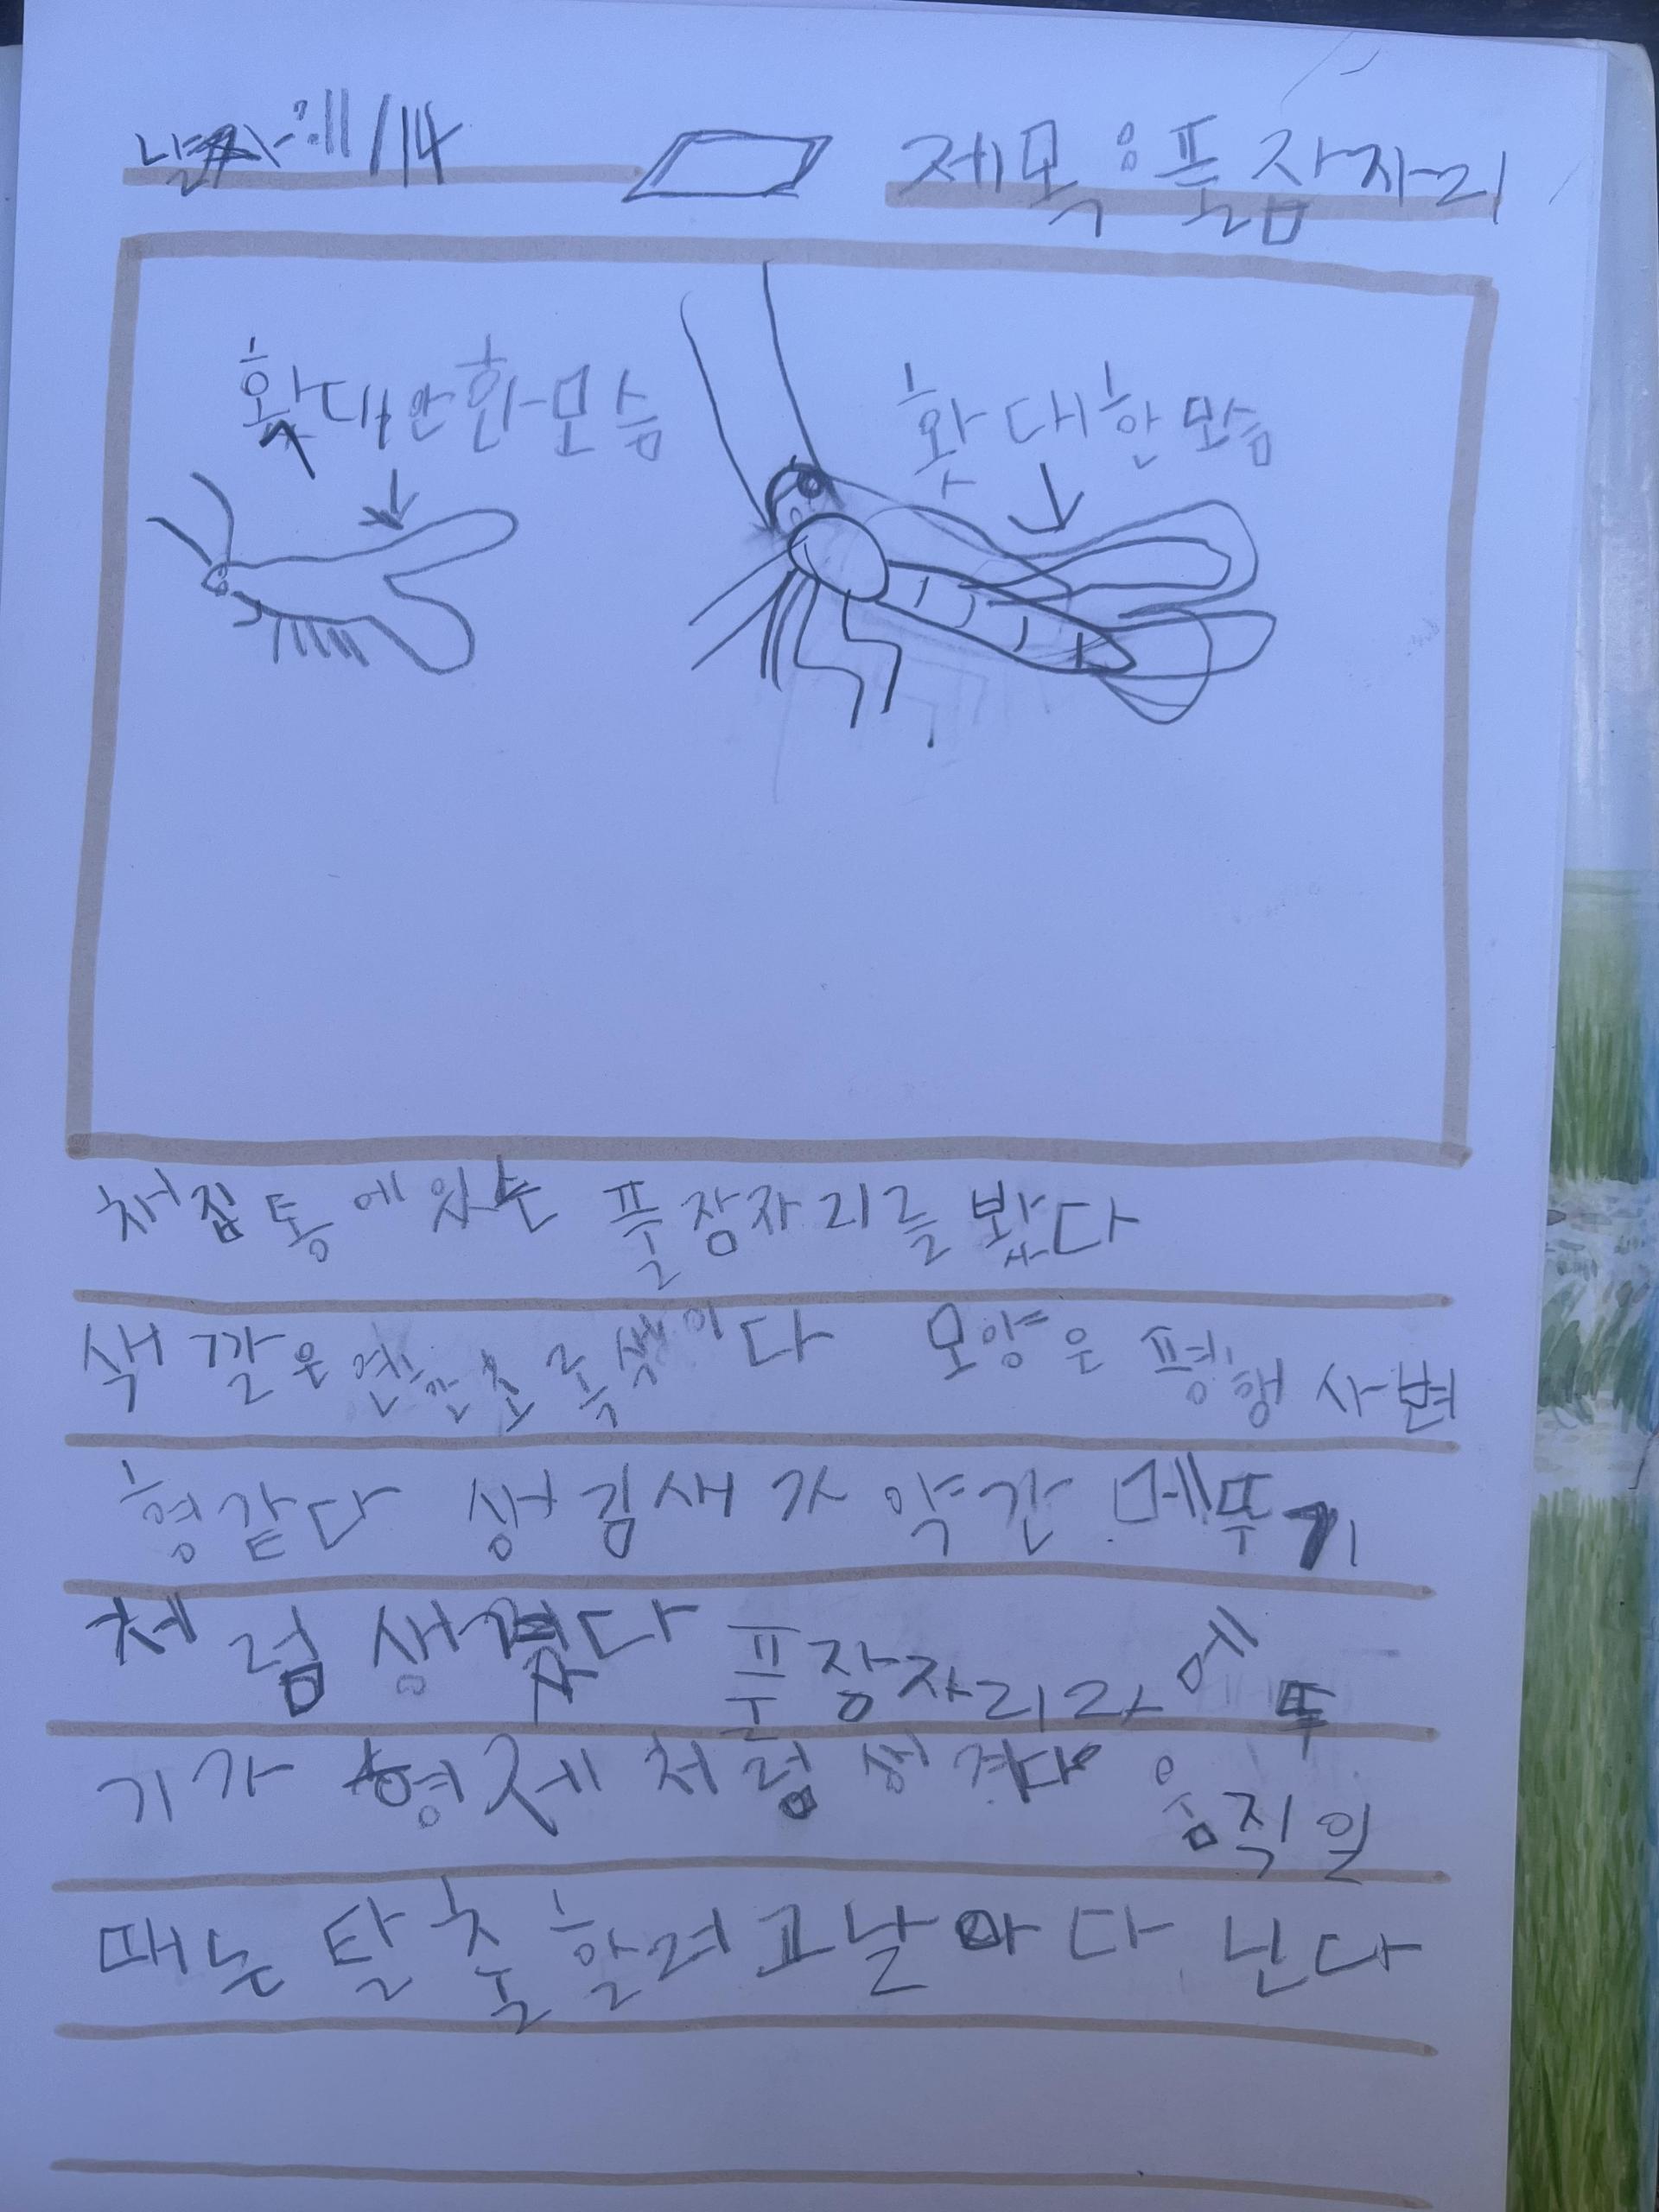 날짜:11/14
제목:풀잠자리
확대안화모습
확대한모습
채집통에있는 풀장자리를 봤다
색깔은연한초록색이다 모양은 평행사변
형같다 생김새가 약간 메뚜기
처럼 생겼다 풀장자리라에뚜
기가 형제처럼 생겼다 움직일
때는 탈출할려고날아다닌다